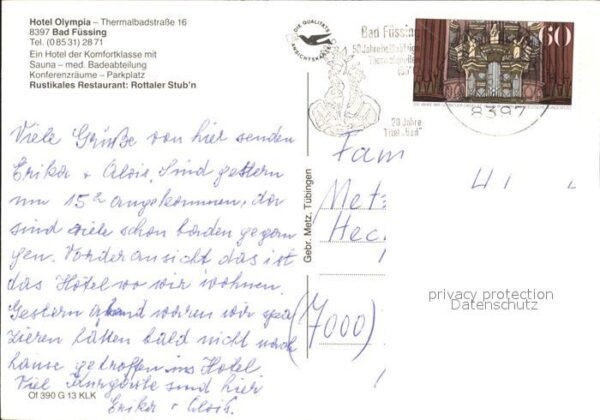 Hotel Olympia – Thermalbadstraße 16
8397 Bad Füssing
Tel. (0 85 31) 28 71
Ein Hotel der Komfortklasse mit
Sauna – med. Badeabteilung
Konferenzräume – Parkplatz
Rustikales Restaurant: Rottaler Stub'n
Viele Grüße von hier senden
Erika + Alois. Sind gestern
um 15h angekommen, da
sind viele schon baden gegan
gen. Vorderansicht das ist
das Hotel wo wir wohnen.
Gestern Abend warren wir spa
zieren hätten bald nicht nach
hause getroffen ins Hotel
Viel Kurgäste sind hier
Erika + Alois.
Of 390 G 13 KLK
Gebr. Metz, Tübingen
DIE QUALITÄTS
ANSICHTSKARTE
Bad Füssing
50 Jahre
20 Jahre
Titel „Bad"
8397
60
Fam
Metz
Hec
(7000)
privacy protection
Datenschutz